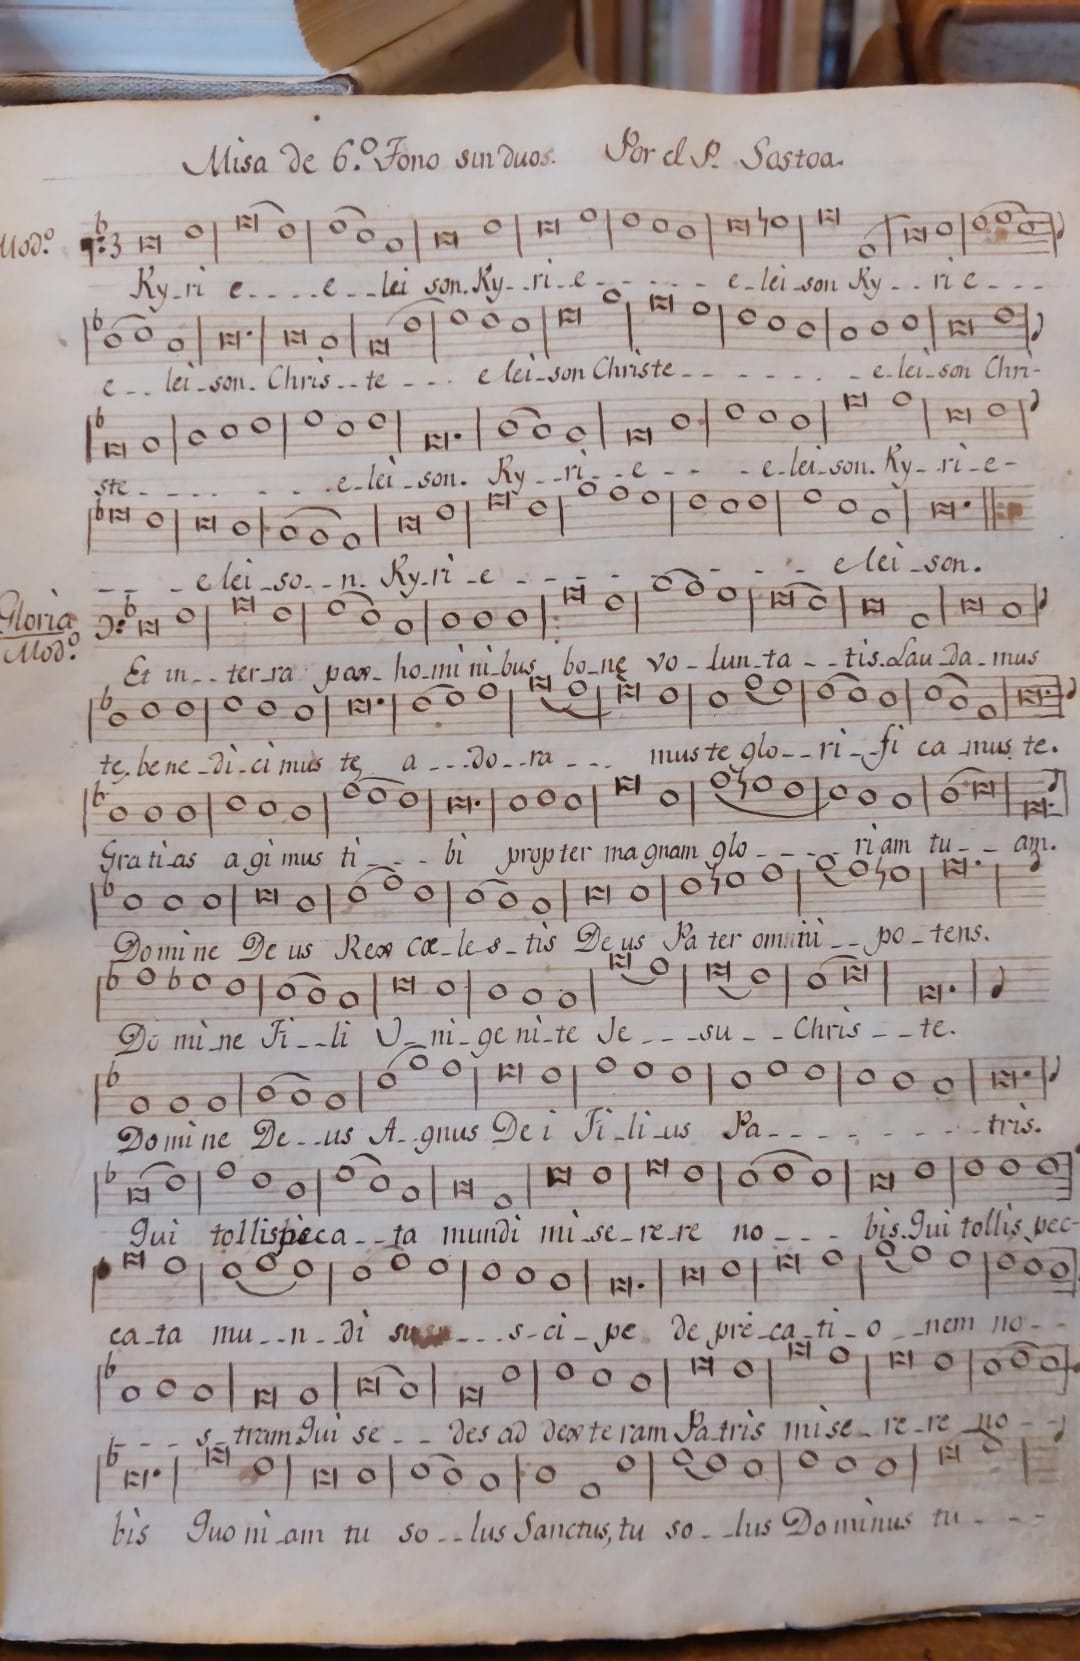 Misa de 6.º Tono sin duos. Por el P. Sostoa.
Mod.º
Ky-ri e - - - - e - - lei son. Ky - - ri - e - - - - - - e - lei - son Ky - - ri e - - - -
e - - lei - son. Chris - - te - - - e lei - son Christe - - - - - - - e - lei - son Chri-
ste - - - - - - - e - lei - son. Ky - - ri - - e - - - e - lei - son. Ky - - ri - e -
- - - e lei - so - - n. Ky-ri - e - - - - - - - - e lei - son.
Gloria
Mod.º
Et in - - ter-ra pax - ho-mi ni-bus bo-nę vo - lun-ta - - tis. Lau-da-mus
te, be ne - di - ci mus te a - - - do - - ra - - - mus te glo - - ri - - fi ca - mus te.
Gra ti - as a gi mus ti - - - bi propter ma gnam glo - - - - ri am tu - - am.
Do mi ne De us Rex cœ-le s - tis De us Pa ter omnii - - po - tens.
Do mi-ne Fi - - li U - ni - ge ni - te Je - - - su - - Chris - - te.
Do mi ne De - - us A - gnus De i Fi - li - us Pa - - - - - - - - tris.
Qui tollis pecca - - ta mundi mi - se - re - re no - - - bis. Qui tollis pec-
ca - ta mu - - n - di su - - - s - ci - pe de pre - ca - ti - o - - nem no - -
- - - s - tram Qui se - - des ad dexte ram Pa-tris mise - re - re no - -
bis Quo ni - am tu so - - lus Sanctus, tu so - - lus Do minus tu - - - -